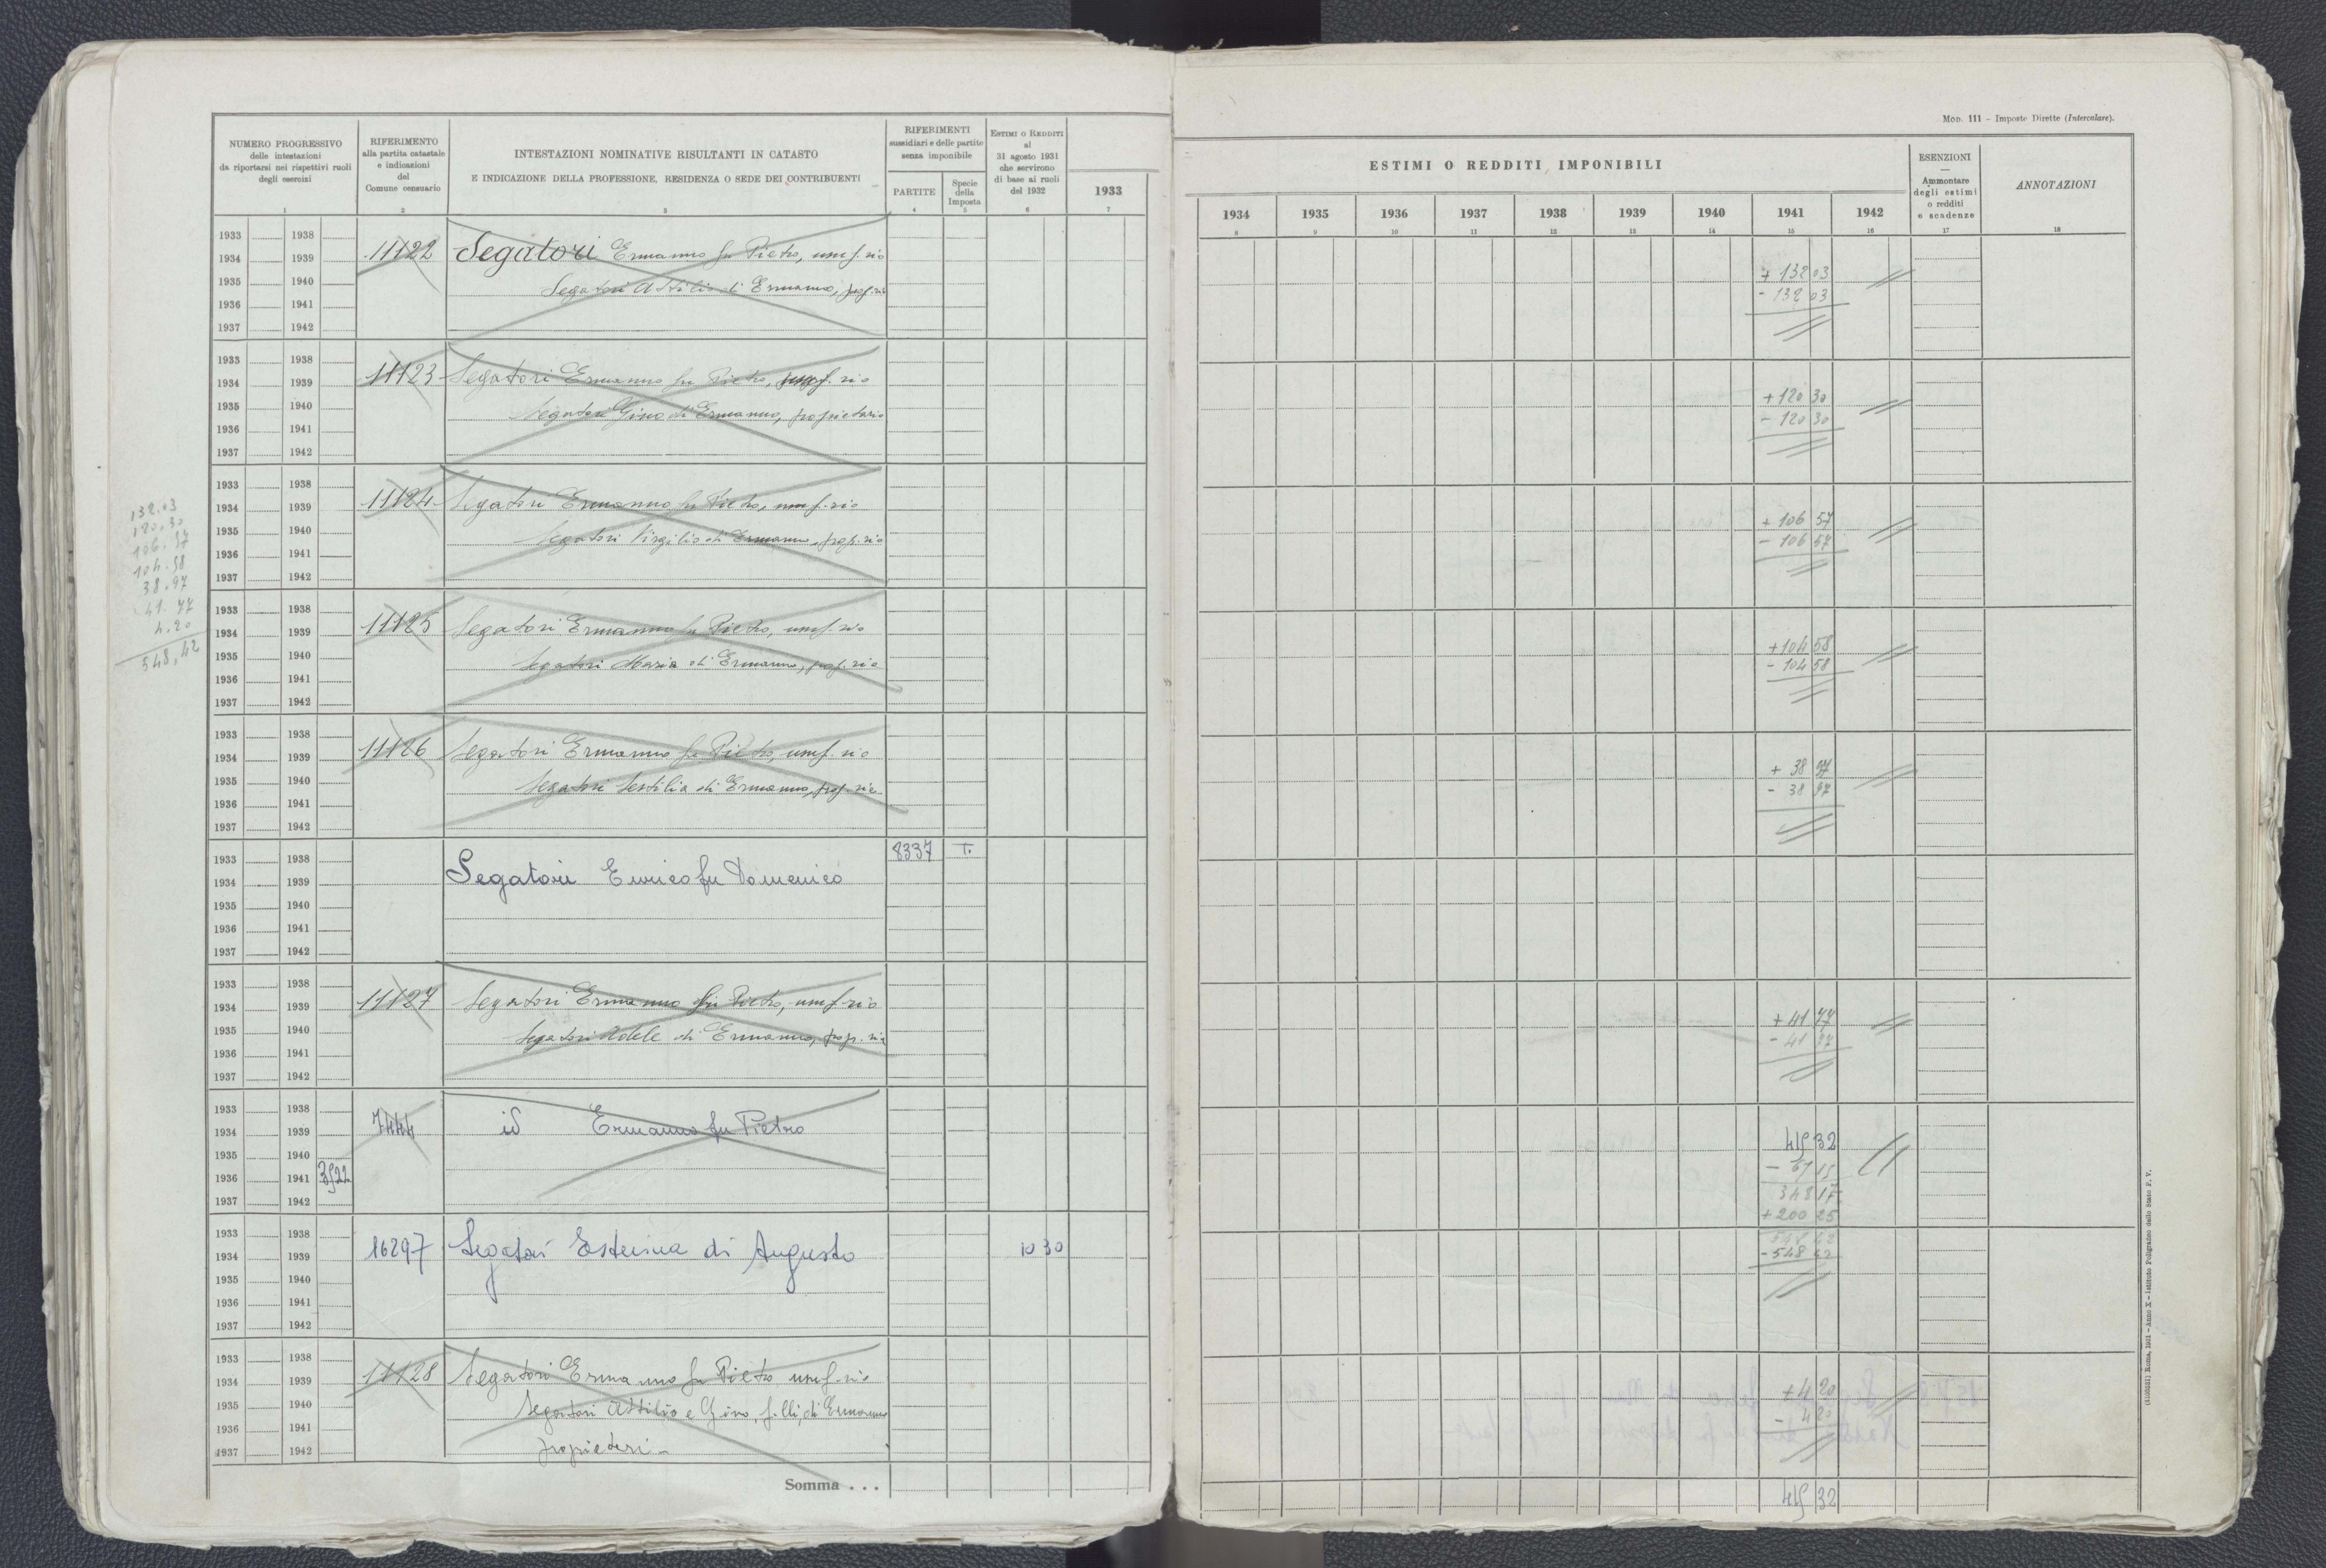 Mod. 111 - Imposte Dirette (Intercalare).
NUMERO PROGRESSIVO
delle intestazioni
da riportarsi nei rispettivi ruoli
degli esercizi
1
RIFERIMENTO
alla partita catastale
e indicazioni
del
Comune censuario
2
INTESTAZIONI NOMINATIVE RISULTANTI IN CATASTO
E INDICAZIONE DELLA PROFESSIONE, RESIDENZA O SEDE DEI CONTRIBUENTI
3
RIFERIMENTI
sussidiari e delle partite
senza imponibile
PARTITE
4
Specie
della
Imposta
5
ESTIMI O REDDITI
al
31 agosto 1931
che servirono
di base ai ruoli
del 1932
6
1933
7
ESTIMI O REDDITI IMPONIBILI
1934 1935 1936 1937 1938 1939 1940 1941 1942
8 9 10 11 12 13 14 15 16
ESENZIONI
Ammontare
degli estimi
o redditi
e scadenze
17
ANNOTAZIONI
18
1933 1938
1934 1939 11122 Segatori Ermanno fu Pietro, usuf.rio
1935 1940 Segatori Attilio di Ermanno, prop.rio
1936 1941
1937 1942
+ 132 03
- 132 03
1933 1938
1934 1939 11123 Segatori Ermanno fu Pietro, usuf.rio
1935 1940 Segatori Gino di Ermanno, proprietario
1936 1941
1937 1942
+ 120 30
- 120 30
1933 1938
1934 1939 11124 Segatori Ermanno fu Pietro, usuf.rio
1935 1940 Segatori Virgilio di Ermanno, prop.rio
1936 1941
1937 1942
+ 106 57
- 106 57
132.03
120.30
106.57
104.58
38.97
41.77
4.20
548,42
1933 1938
1934 1939 11125 Segatori Ermanno fu Pietro, usuf.rio
1935 1940 Segatori Maria di Ermanno, prop.ria
1936 1941
1937 1942
+ 104 58
- 104 58
1933 1938
1934 1939 11126 Segatori Ermanno fu Pietro, usuf.rio
1935 1940 Segatori Sestilia di Ermanno, prop.ria
1936 1941
1937 1942
+ 38 97
- 38 97
1933 1938 8337 T.
1934 1939 Segatori Enrico fu Domenico
1935 1940
1936 1941
1937 1942
1933 1938
1934 1939 11127 Segatori Ermanno fu Pietro, usuf.rio
1935 1940 Segatori Adele di Ermanno, prop.ria
1936 1941
1937 1942
+ 41 77
- 41 77
1933 1938
1934 1939 7444 id Ermanno fu Pietro
1935 1940
1936 1941 3522
1937 1942
415 32
- 67 15
348 17
+ 200 25
548 42
- 548 42
1933 1938
1934 1939 16297 Segatori Esterina di Augusto 10 30
1935 1940
1936 1941
1937 1942
1933 1938
1934 1939 11128 Segatori Ermanno fu Pietro usuf.rio
1935 1940 Segatori Attilio e Gino, f.lli, di Ermanno
1936 1941
1937 1942 proprietari
+ 4 20
- 4 20
Somma . . .
415 32
(4100581) Roma, 1931 - Anno X - Istituto Poligrafico dello Stato P. V.